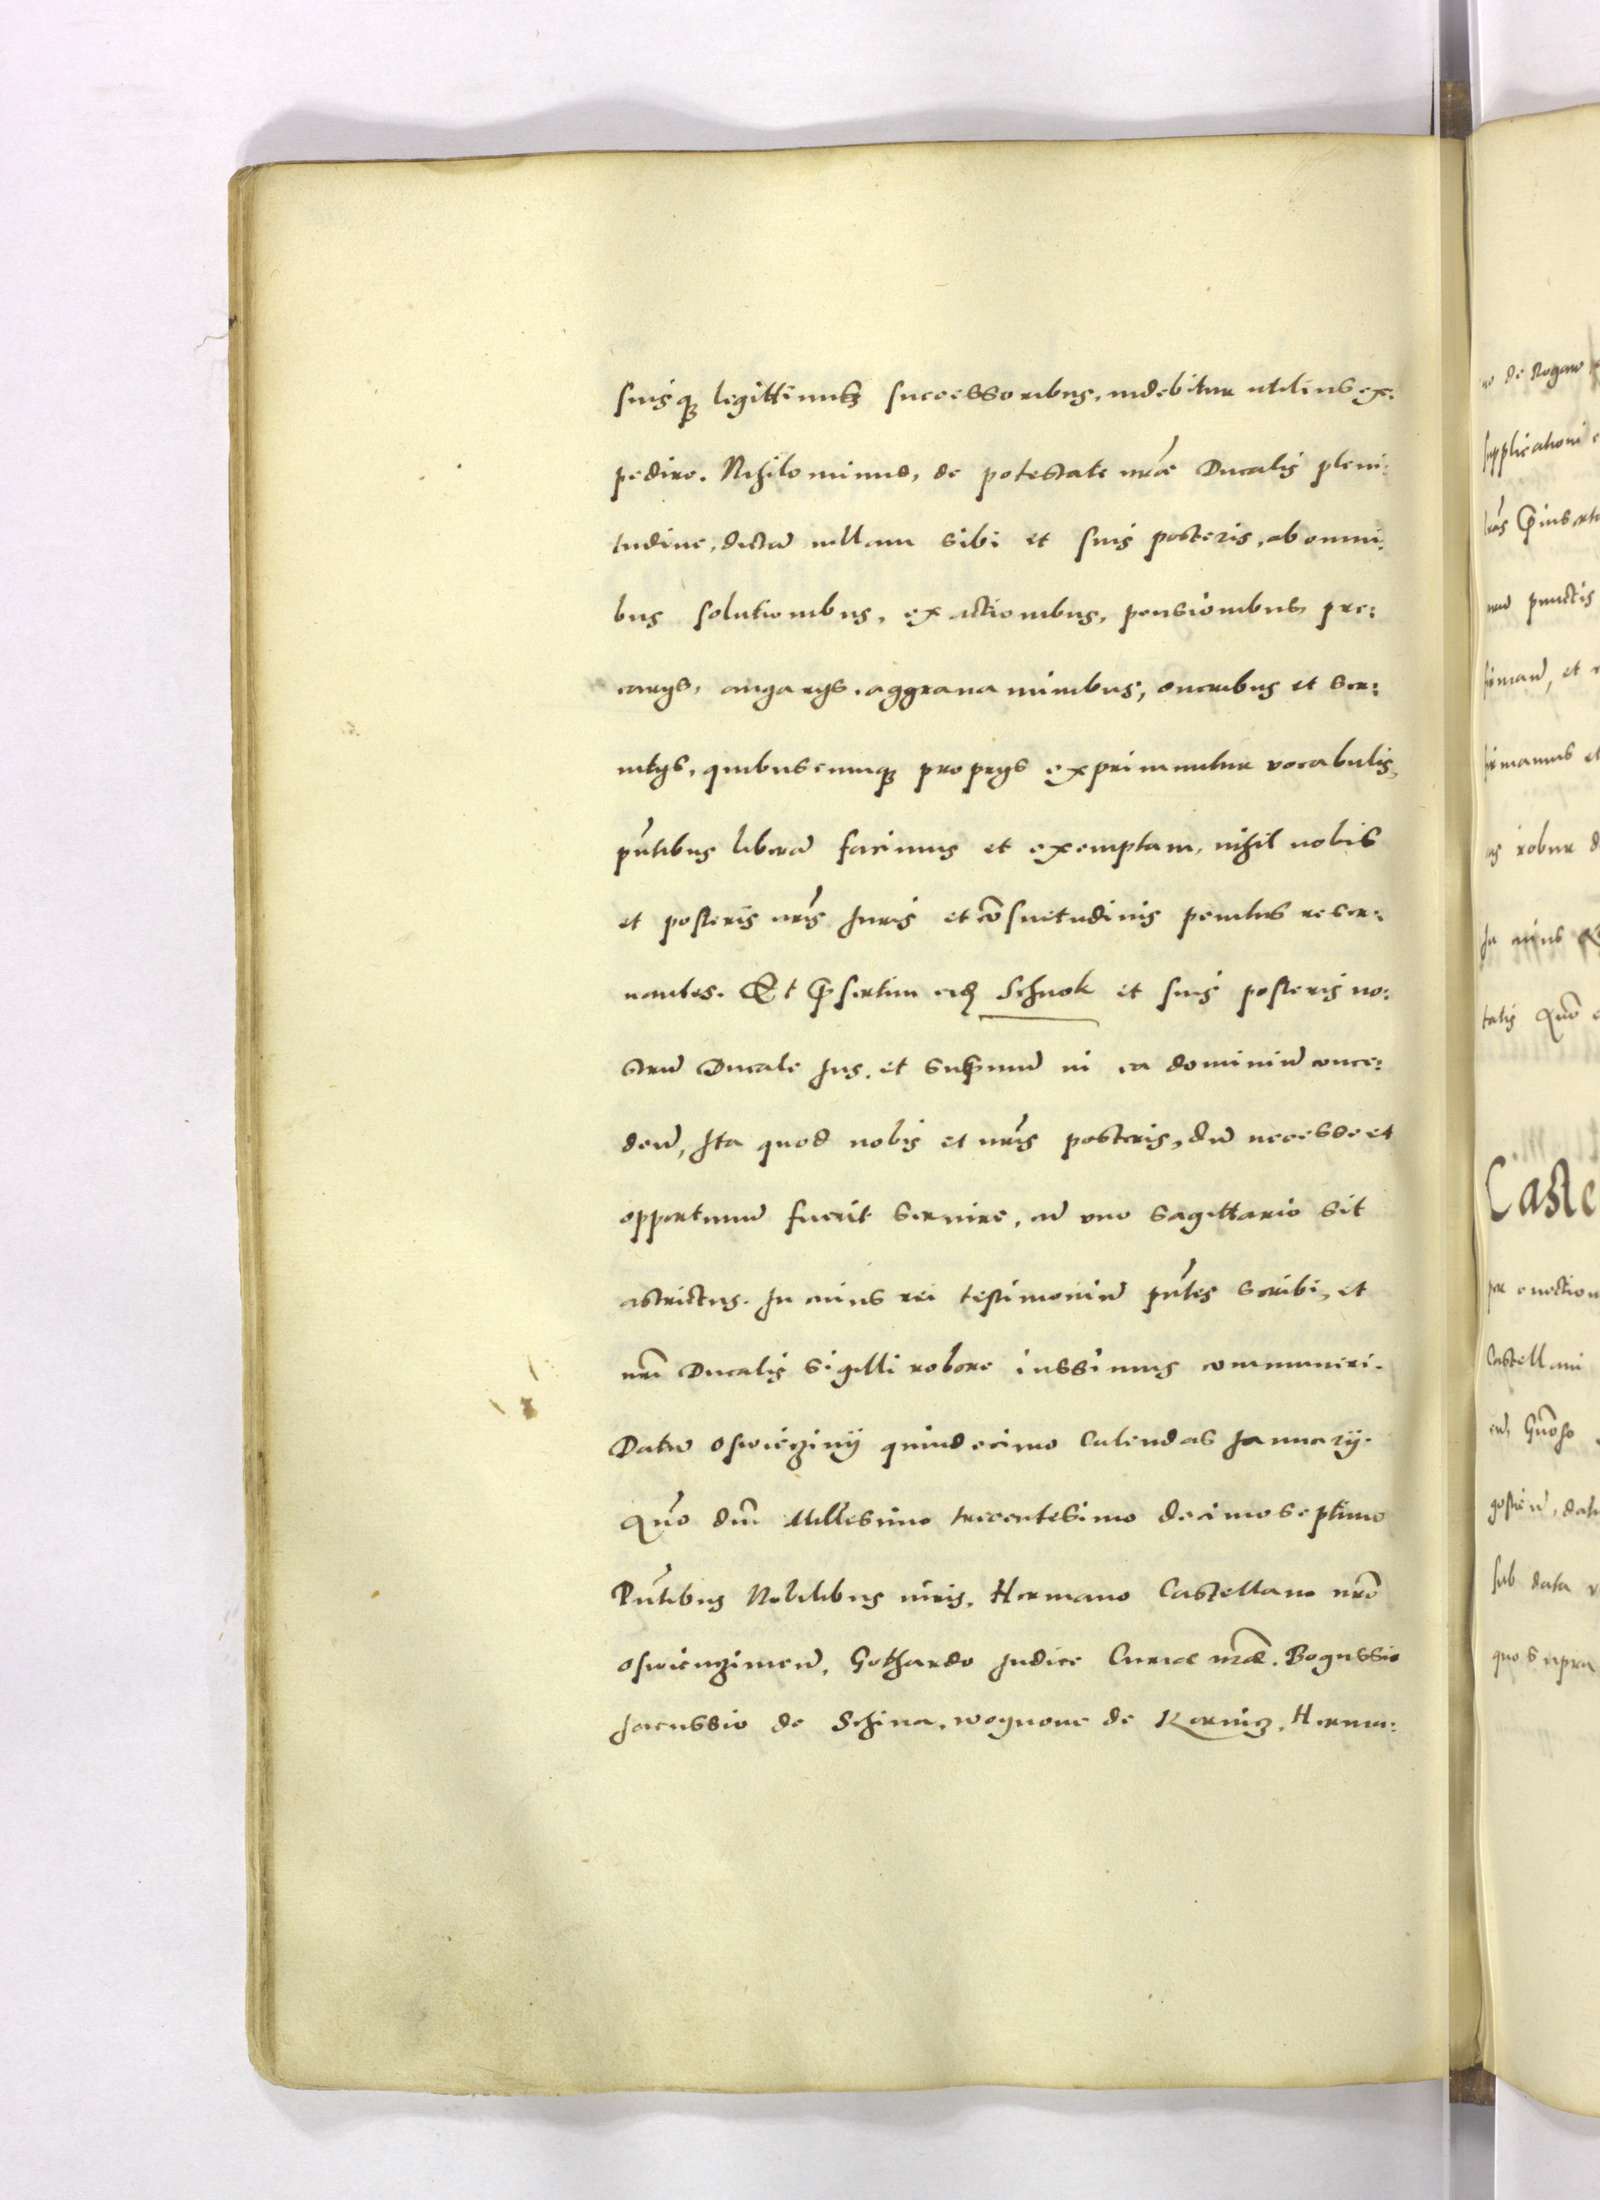 suisq legittimis successoribus, uidebitur utilius exe:
pedire. Nihilominus, de potestate nrae Ducalis pleni:
tudine, dictā uillam sibi et suis posteris, ab omni:
bus solutionibus, exactionibus, pensionibus, pre:
carijs, angarijs, aggrauaminibus, oneribus et ser:
uitijs, quibuscunq proprijs exprimuntur vocabulis,
pntibus liberā facimus et exemptam, nihil nobis
et posteris nris Juris et cōsuetudinis penitus reser:
uantes. Et psertim eid Schnok et suis posteris no:
strū Ducale Jus, et supmū in ea dominiū conce:
den, Ita quod nobis et nris posteris, dū necesse et
opportunū fuerit seruire, cū vno sagittario sit
astrictus. In cuius rei testimoniū pntes scribi, et
nri Ducalis sigilli robore iussimus communiri.
Datū Oswiecziny quindecimo Calendas Januarij.
Āno dni Millesimo trecentesimo decimoseptimo
Pntibus Nobilibus uiris, Hermano Castellano nro
Oswienczimen, Gothardo Judice Curiae nrae. Bogussio
Jacussio de Schina, wognone de Kerniz, Herma:
no de Rogow
supplicationi
lras pinserta
punctis
firmand, et
firmamus et
robur
In cuius
talis Quō
Caste
per
Castellani
Gnoso
sub data
quo supra